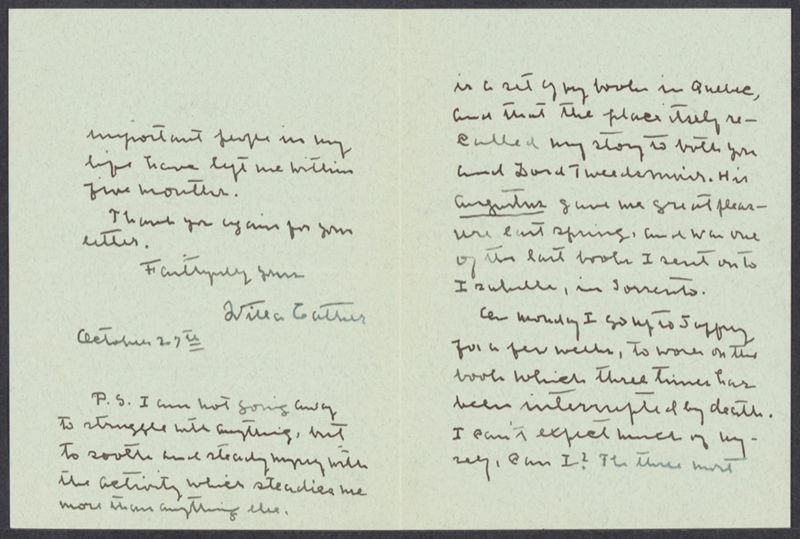 is a set of my books in Quebec,
and that the place itself re-
called my story to both you
and Lord Tweedsmuir. His
Augustus gave me great pleas-
ure last spring, and was one
of the last books I sent on to
Isabelle, in Sorrento.
On Monday I go up to Jaffrey
for a few weeks, to work on the
book which three times has
been interrupted by death.
I can't expect much of my-
self, can I? The three most
important people in my
life have left me within
five months.
Thank you again for your
letter.
Faithfully yours
Willa Cather
October 27th
P.S. I am not going away
to struggle with anything, but
to soothe and steady myself with
the activity which steadies me
more than anything else.